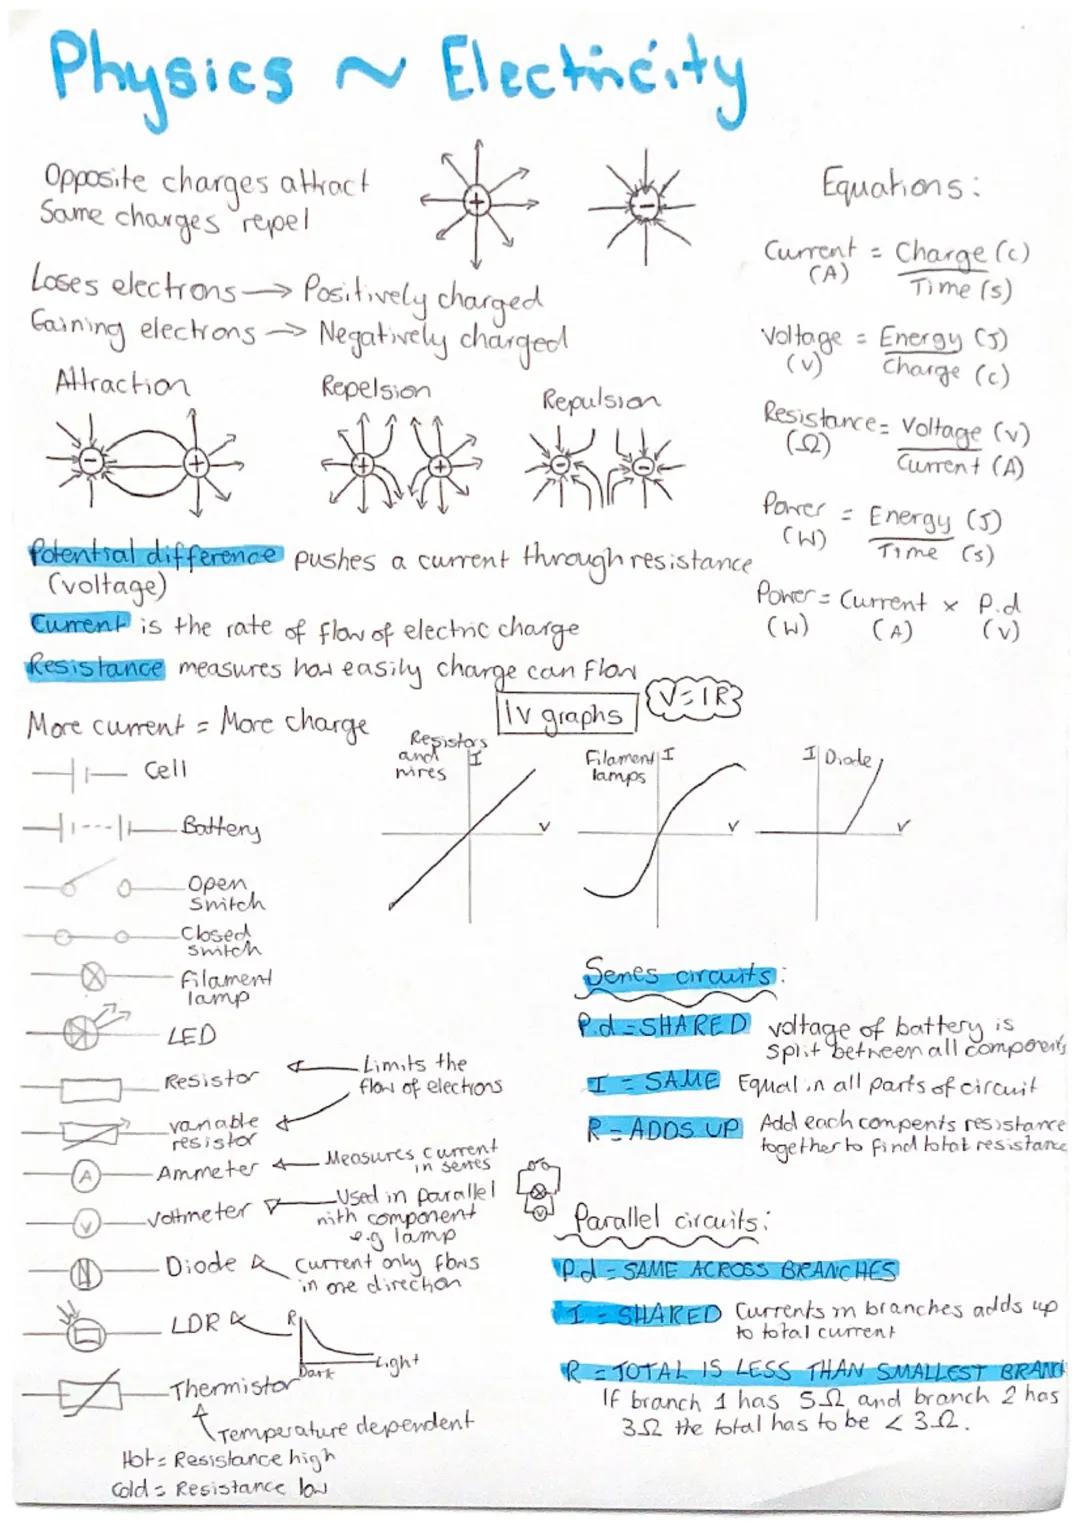 Physics ~ Electricity
Opposite charges attract
Same charges repel
+
-
Loses electrons → Positively charged
Gaining electrons → Negatively charged
Attraction
Repelsion
Repulsion
-
+
+
+
-
-
Potential difference pushes a current through resistance
(voltage)
Current is the rate of flow of electric charge
Resistance measures how easily charge can flow
More current = More charge
Equations:
Current = Charge (c)
(A) Time (s)
Voltage = Energy (J)
(v) Charge (c)
Resistance = Voltage (v)
(Ω) Current (A)
Power = Energy (J)
(W) Time (s)
Power = Current x P.d
(W) (A) (v)
IV graphs
V=IR
Resistors
and
wires
I
V
Filament
lamps
I
V
I
Diode
V
Cell
Battery
Open
switch
Closed
switch
filament
lamp
LED
Resistor
Limits the
flow of electrons
variable
resistor
A
Ammeter ← Measures current
in series
V
Voltmeter ← Used in parallel
with component
e.g lamp
V
Diode ← Current only flows
in one direction
LDR
R
Dark
Light
Thermistor
Temperature dependent
Hot = Resistance high
Cold = Resistance low
Series circuits:
P.d = SHARED voltage of battery is
split between all components
I = SAME Equal in all parts of circuit
R = ADDS UP Add each compents resistance
together to find total resistance
Parallel circuits:
P.d = SAME ACROSS BRANCHES
I = SHARED Currents in branches adds up
to total current
R = TOTAL IS LESS THAN SMALLEST BRANCH
If branch 1 has 5Ω and branch 2 has
3Ω the total has to be < 3Ω.